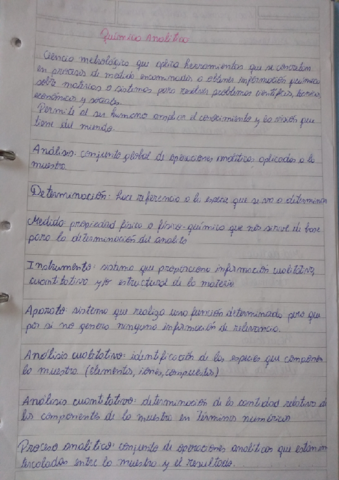 Química Analítica
Ciencia metrológica que aplica herramientas que se concretan
en procesos de medida encaminados a obtener información química
sobre materias o sistemas para resolver problemas científicos, técnicos,
económicos y sociales.
Permite al ser humano ampliar el conocimiento y la visión que
tiene del mundo.
Análisis: conjunto global de operaciones analíticas aplicadas a la
muestra.
Determinación: hace referencia a la especie que se va a determinar
Medida: propiedad física o físico-química que nos sirve de base
para la determinación del analito
Instrumento: sistema que proporciona información cualitativa,
cuantitativa y/o estructural de la materia
Aparato: sistema que realiza una función determinada pero que
por sí no genera ninguna información de relevancia.
Análisis cualitativo: identificación de las especies que componen
la muestra. (elementos, iones, compuestos)
Análisis cuantitativo: determinación de la cantidad relativa de
los componentes de la muestra en términos numéricos
Proceso analítico: conjunto de operaciones analíticas que están
intercaladas entre la muestra y el resultado.